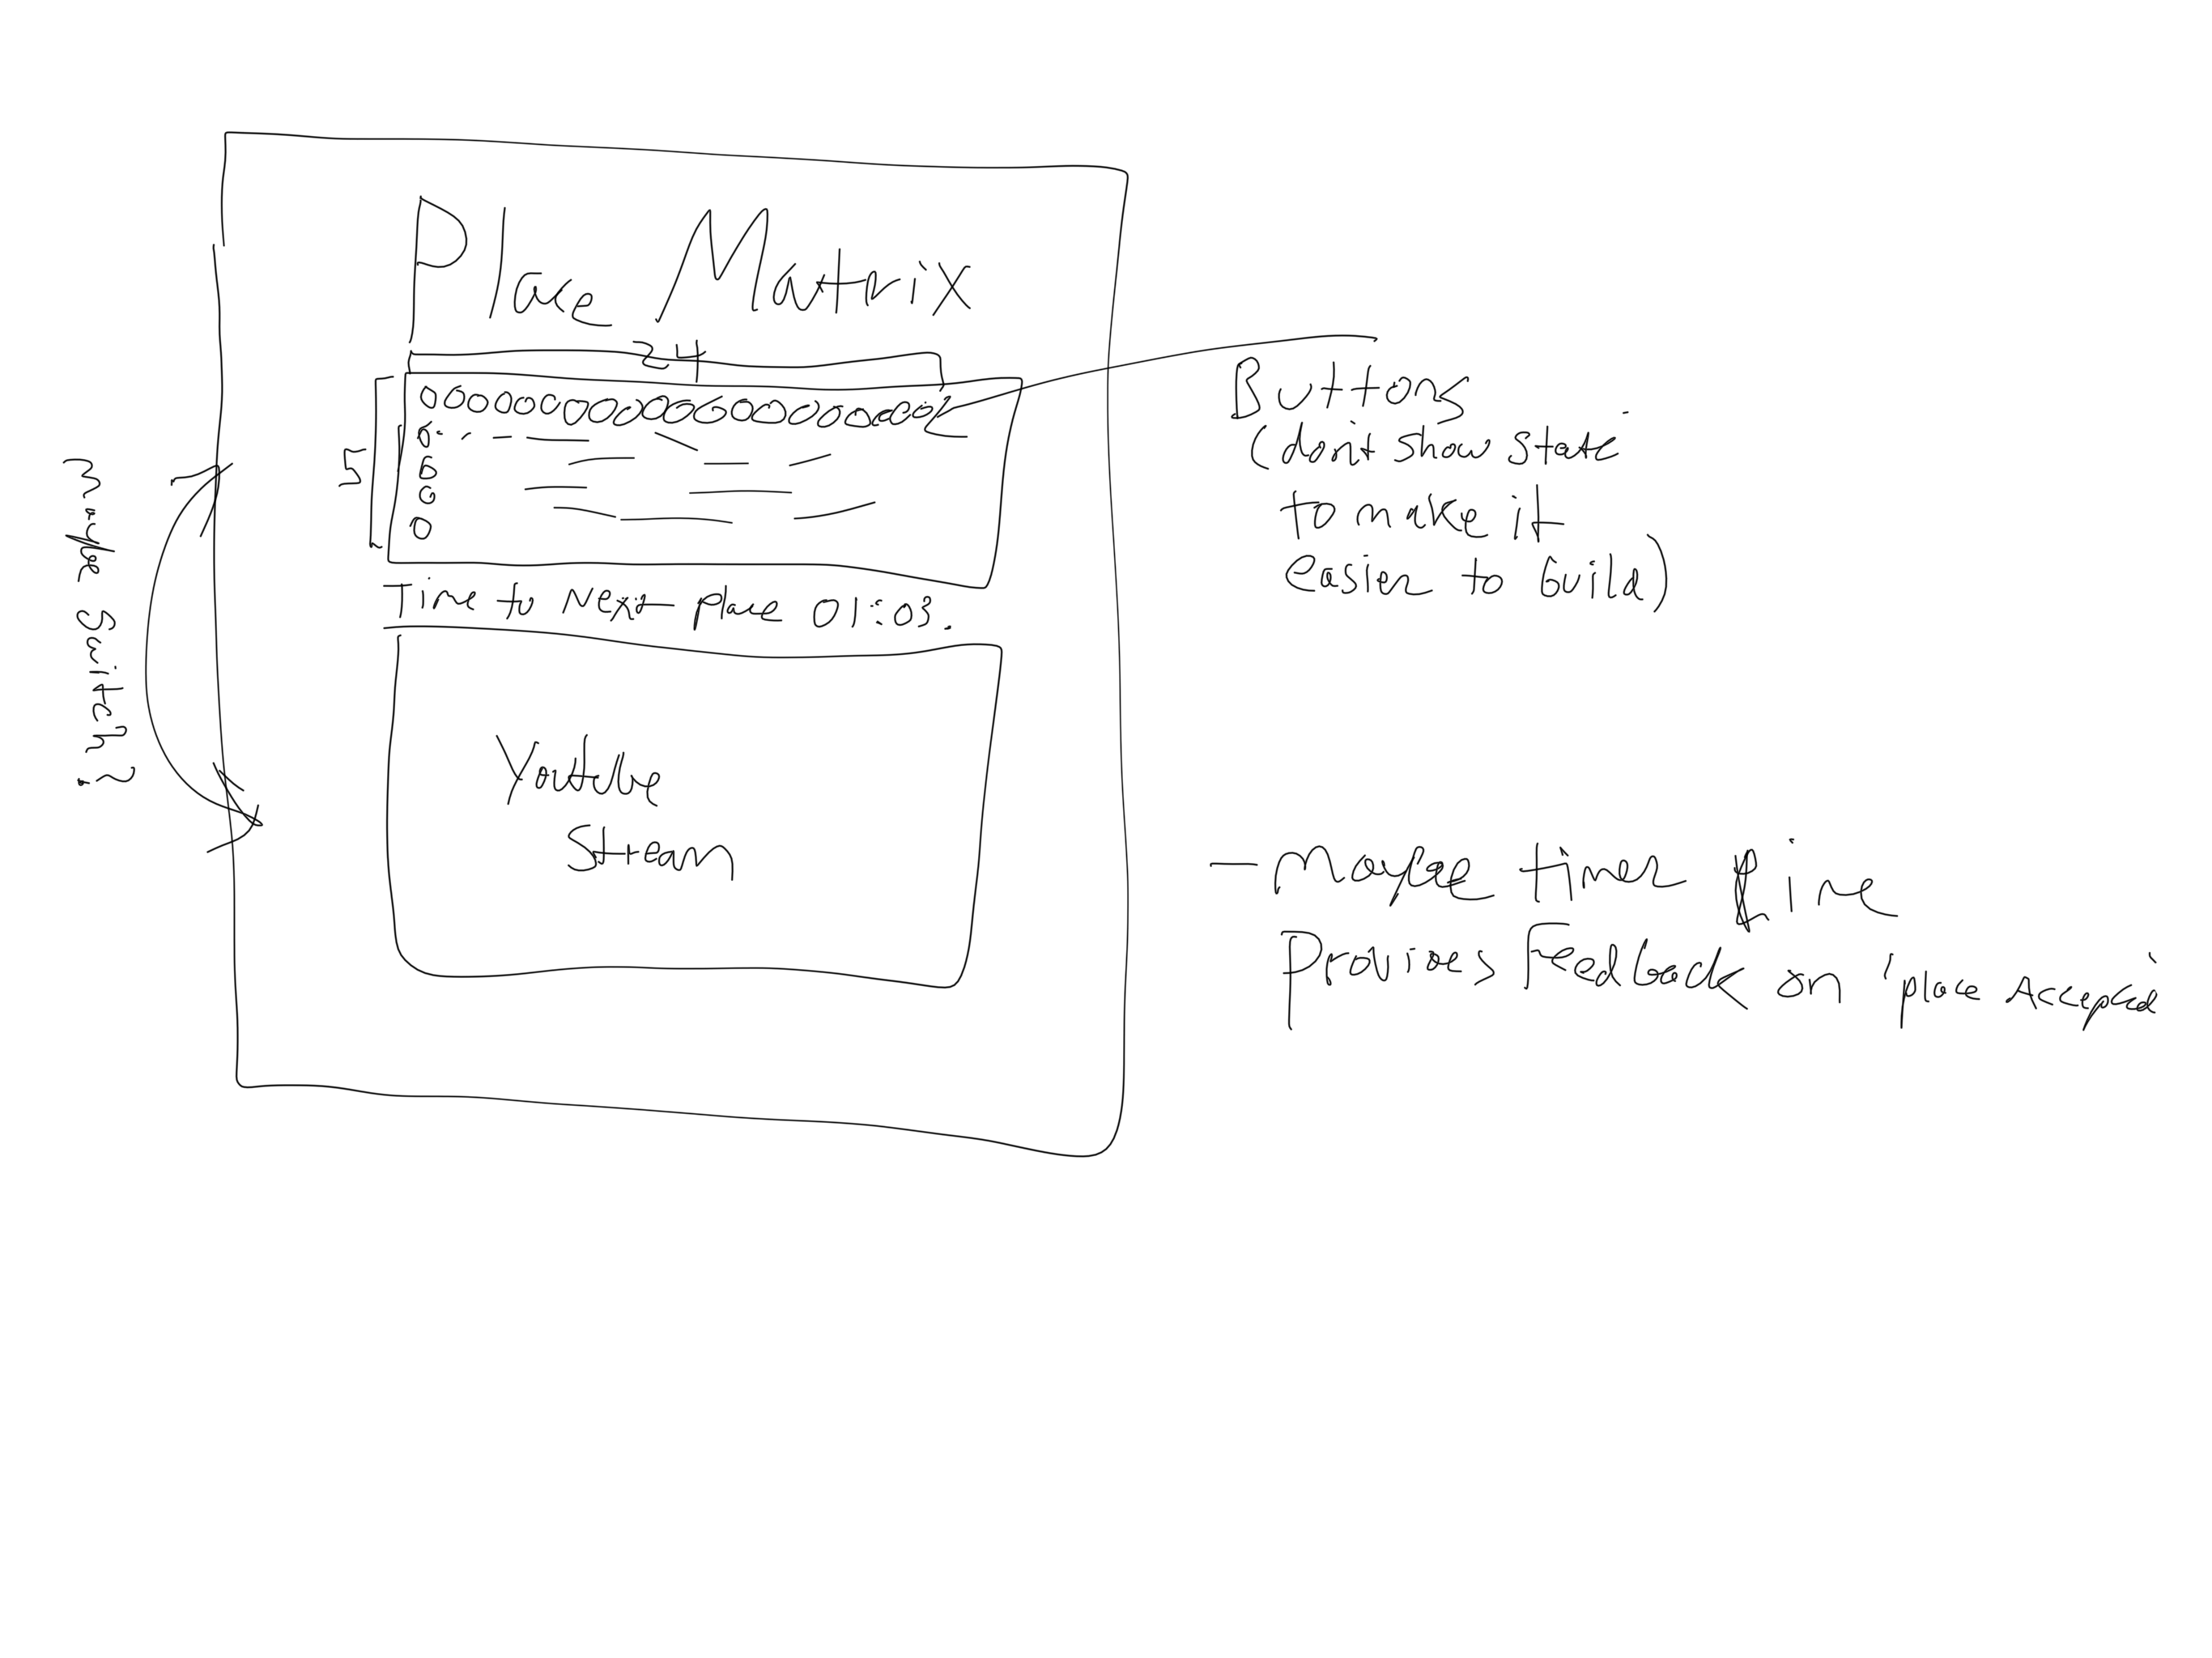 Place Matrix
24
5
Time to Next place 01:03.
Youtube
Stream
maybe switch?
Buttons
(don't show state
to make it
easier to build)
- maybe timer line
Provides Feedback on 'place Accepted'